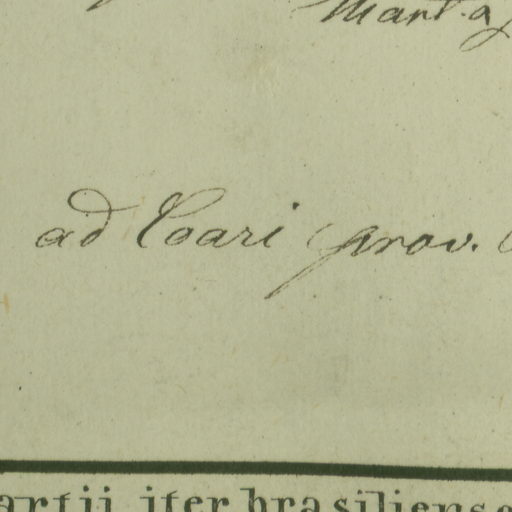 Mart.
ad Coari prov.
artii iter brasiliense